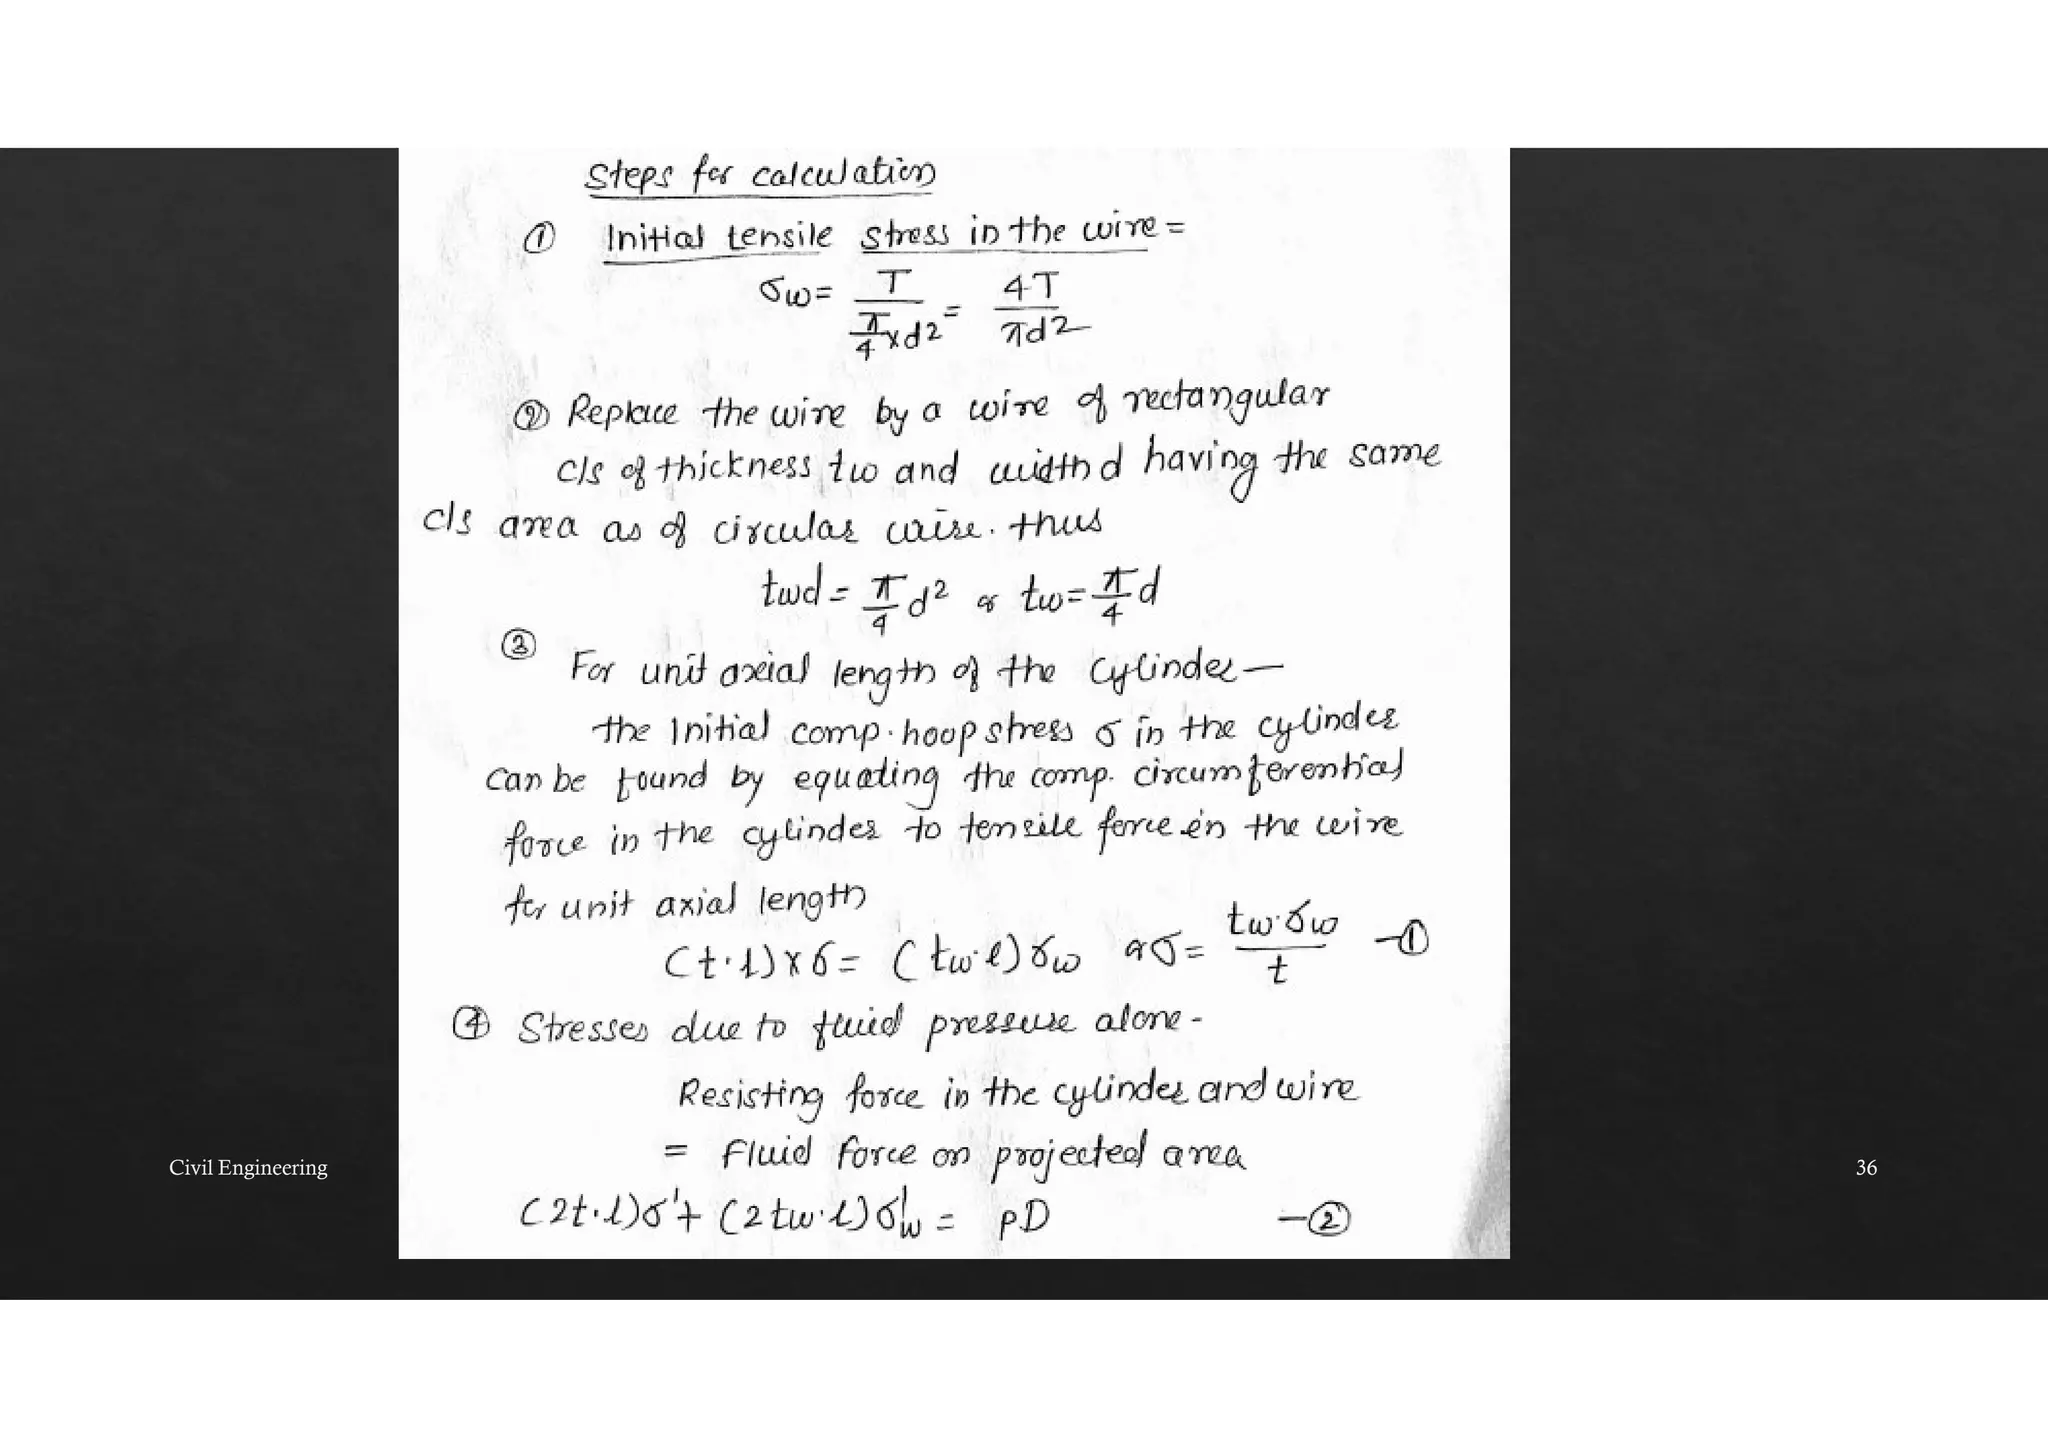 Steps for calculation
① Initial tensile stress in the wire =
σw = T / (π/4 × d²) = 4T / πd²
② Replace the wire by a wire of rectangular
c/s of thickness tw and width d having the same
c/s area as of circular wire. thus
twd = π/4 d² or tw = π/4 d
③
For unit axial length of the cylinder —
the Initial comp. hoop stress σ in the cylinder
can be found by equating the comp. circumferential
force in the cylinder to tensile force in the wire
for unit axial length
(t·1)×σ = (tw·1)σw or σ = tw·σw / t —①
④ Stresses due to fluid pressure alone -
Resisting force in the cylinder and wire
= Fluid force on projected area
(2t·1)σ' + (2tw·1)σ'w = pD —②
Civil Engineering
36